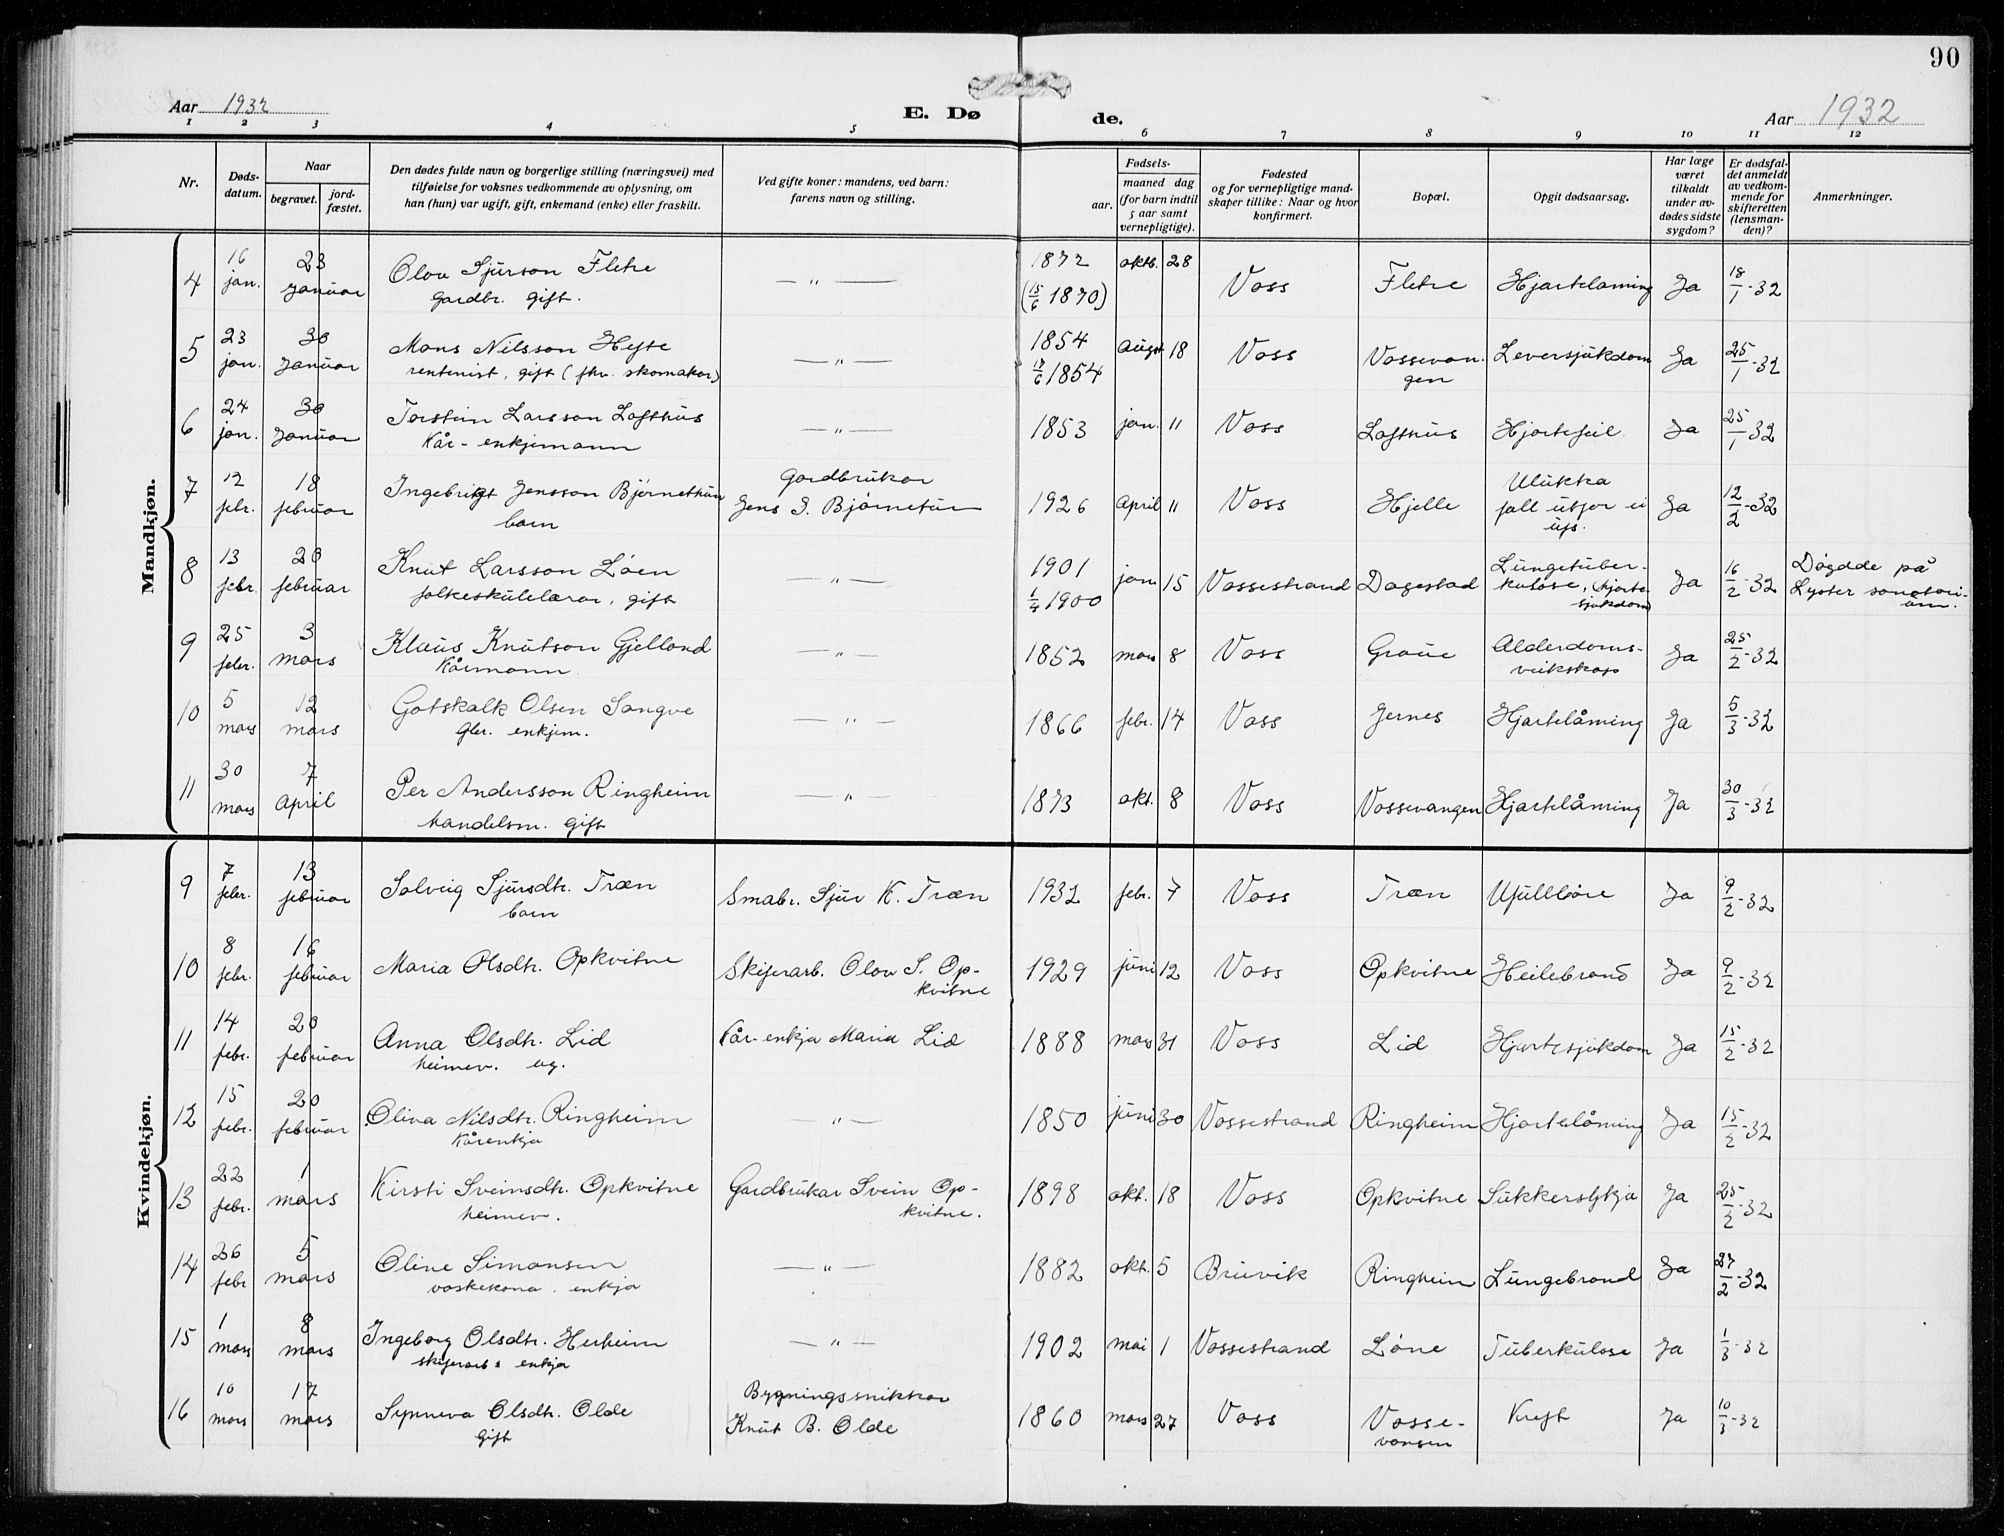 90
Aar 1932
E. Dø
de.
Aar 1932
1 2 3 4 5 6 7 8 9 10 11 12
Nr.
Døds-
datum.
Naar
begravet.
jord-
fæstet.
Den dødes fulde navn og borgerlige stilling (næringsvei) med
tilføielse for voksnes vedkommende av oplysning, om
han (hun) var ugift, gift, enkemand (enke) eller fraskilt.
Ved gifte koner: mandens, ved barn:
farens navn og stilling.
Fødsels-
aar.
maaned dag
(for barn indtil
5 aar samt
vernepligtige).
Fødested
og for vernepligtige mand-
skaper tillike: Naar og hvor
konfirmert.
Bopæl.
Opgit dødsaarsag.
Har læge
været
tilkaldt
under av-
dødes sidste
sygdom?
Er dødsfal-
det anmeldt
av vedkom-
mende for
skifteretten
(lensman-
den)?
Anmerkninger.
Mandkjøn.
4 16 jan. 23 januar Olov Sjurson Fletre — " — 1872 oktb. 28 Voss Fletre Hjartelaming Ja 18/1-32
Gardbr. gift. (15/6 1870)
5 23 jan. 30 januar Mons Nilsson Hefte — " — 1854 August 18 Voss Vossevan- Leversjukdom Ja 25/1-32
rentenist, gift (fhv. skomakar) 1854 gen
6 24 jan. 30 januar Torstein Larsson Lofthus — " — 1853 jan. 11 Voss Lofthus Hjartefeil. Ja 25/1-32
Kår- enkjemann
7 12 febr. 18 februar Ingebrigt Jensson Bjørnethun Gardbrukar 1926 April 11 Voss Hjelle Ulukka Ja 12/2-32
barn Jens I. Bjørnetun fall utfor ei
ufs.
8 13 febr. 20 februar Knut Larsson Løen — " — 1901 jan 15 Vossestrand Dagestad Lungetuber- Ja 16/2-32 Døgdde på
folkeskulelærar, gift 1/4 1900 kulose, (hjarte- Lyster sanatori-
sjukdom) um.
9 25 febr. 3 mars Klaus Knutson Gjelland — " — 1852 mars 8 Voss Graue Alderdoms- Ja 25/2-32
Kårmann veikskap
10 5 mars 12 mars Gotskalk Olsen Sangve — " — 1866 febr. 14 Voss Jernes Hjartelåming Ja 5/3-32
gbr. enkjem.
11 30 mars 7 april Per Andersson Ringheim — " — 1873 okt. 8 Voss Vossevangen Hjartelåming Ja 30/3-32
handelsm. gift
Kvindekjøn.
9 7 febr. 13 februar Solveig Sjursdtr. Træn Smabr. Sjur K. Træn 1932 febr. 7 Voss Træn Ufullbåre Ja 9/2-32
barn
10 8 febr. 16 februar Maria Olsdtr. Opkvitne Skiferarb. Olov S. Op- 1929 juni 12 Voss Opkvitne Heilebrand Ja 9/2-32
kvitne
11 14 febr. 20 februar Anna Olsdtr. Lid Kår-enkja Maria Lid 1888 mars 31 Voss Lid Hjartesjukdom Ja 15/2-32
heimev. ug.
12 15 febr. 20 februar Olina Nilsdtr. Ringheim — " — 1850 juni 30 Vossestrand Ringheim Hjartelåming Ja 15/2-32
Kårenkja
13 22 febr. 1 mars Kirsti Sveinsdtr. Opkvitne Gardbrukar Svein Op- 1898 okt. 18 Voss Opkvitne Sukkersykja Ja 25/2-32
heimev. kvitne.
14 26 febr 5 mars Oline Simonsen — " — 1882 okt. 5 Bruvik Ringheim Lungebrand Ja 27/2-32
vaskekona. enkja
15 1 mars 8 mars Ingeborg Olsdtr. Herheim — " — 1902 mai 1 Vossestrand Løne Tuberkulose Ja 1/3-32
skiferarb.s enkja
16 10 mars 17 mars Synneva Olsdtr. Olde Bygningssnikkar 1860 mars 27 Voss Vosse- Kreft Ja 10/3-32
Gift Knut B. Olde vangen